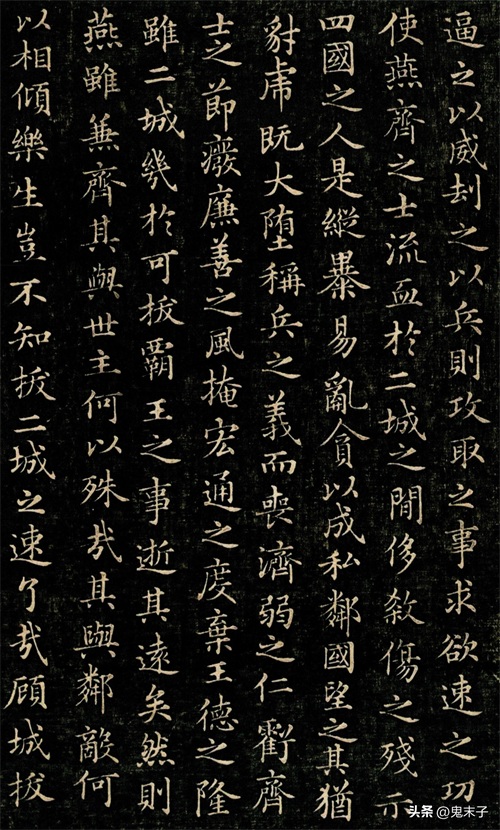 逼之以威刼之以兵則攻取之事求欲速之功
使燕齊之士流血於二城之間侈敘傷之殘示
四國之人是縱暴易亂貪以成私鄰國望之其猶
豺虎既大墮稱兵之義而喪濟弱之仁虧齊
士之節癈廉善之風掩宏通之度棄王德之隆
雖二城幾於可拔霸王之事逝其遠矣然則
燕雖兼齊其與世主何以殊哉其與鄰敵何
以相傾樂生豈不知拔二城之速了哉顧城拔
头条 @鬼末子